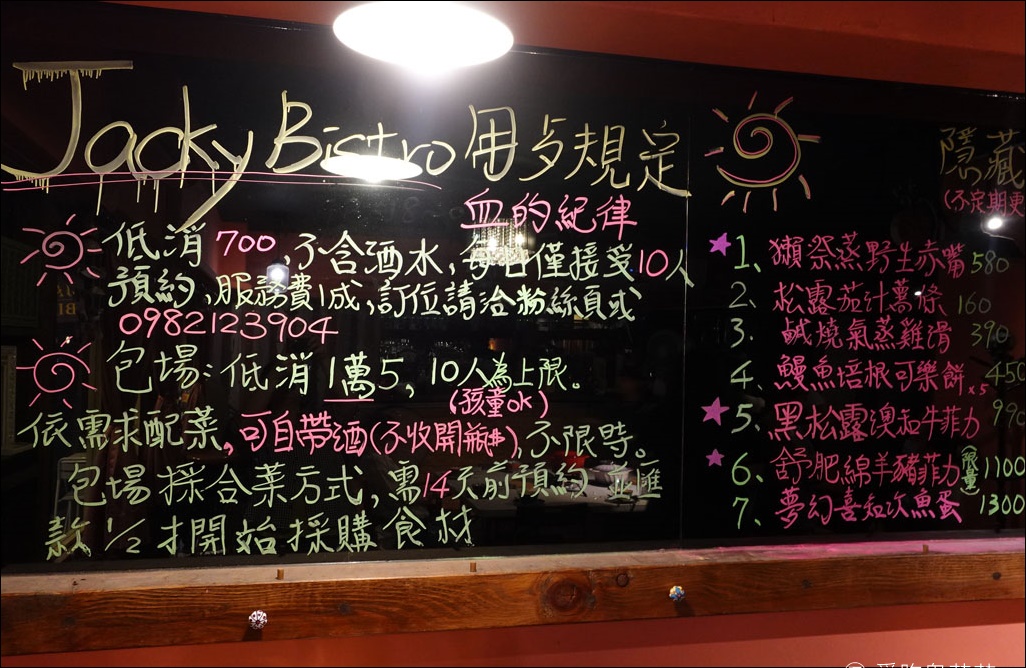 Jacky Bistro 用歺規定
血的紀律
低消700,不含酒水,每日僅接受10人
預約,服務費1成,訂位請洽粉絲頁或
0982123904
包場:低消1萬5,10人為上限。
(孩童ok)
依需求配菜,可自帶酒(不收開瓶$),不限時。
包場採合菜方式,需14天前預約並匯
款1/2才開始採購食材
隱藏
(不定期更
1、獺祭蒸野生赤嘴580
2、松露茄汁薯條160
3、鹹燒氣蒸雞滑390
4、鰻魚培根可樂餅x5 450
5、黑松露澳和牛菲力990
6、舒肥綿羊豬菲力(限量)1100
7、夢幻喜知次魚蛋1300